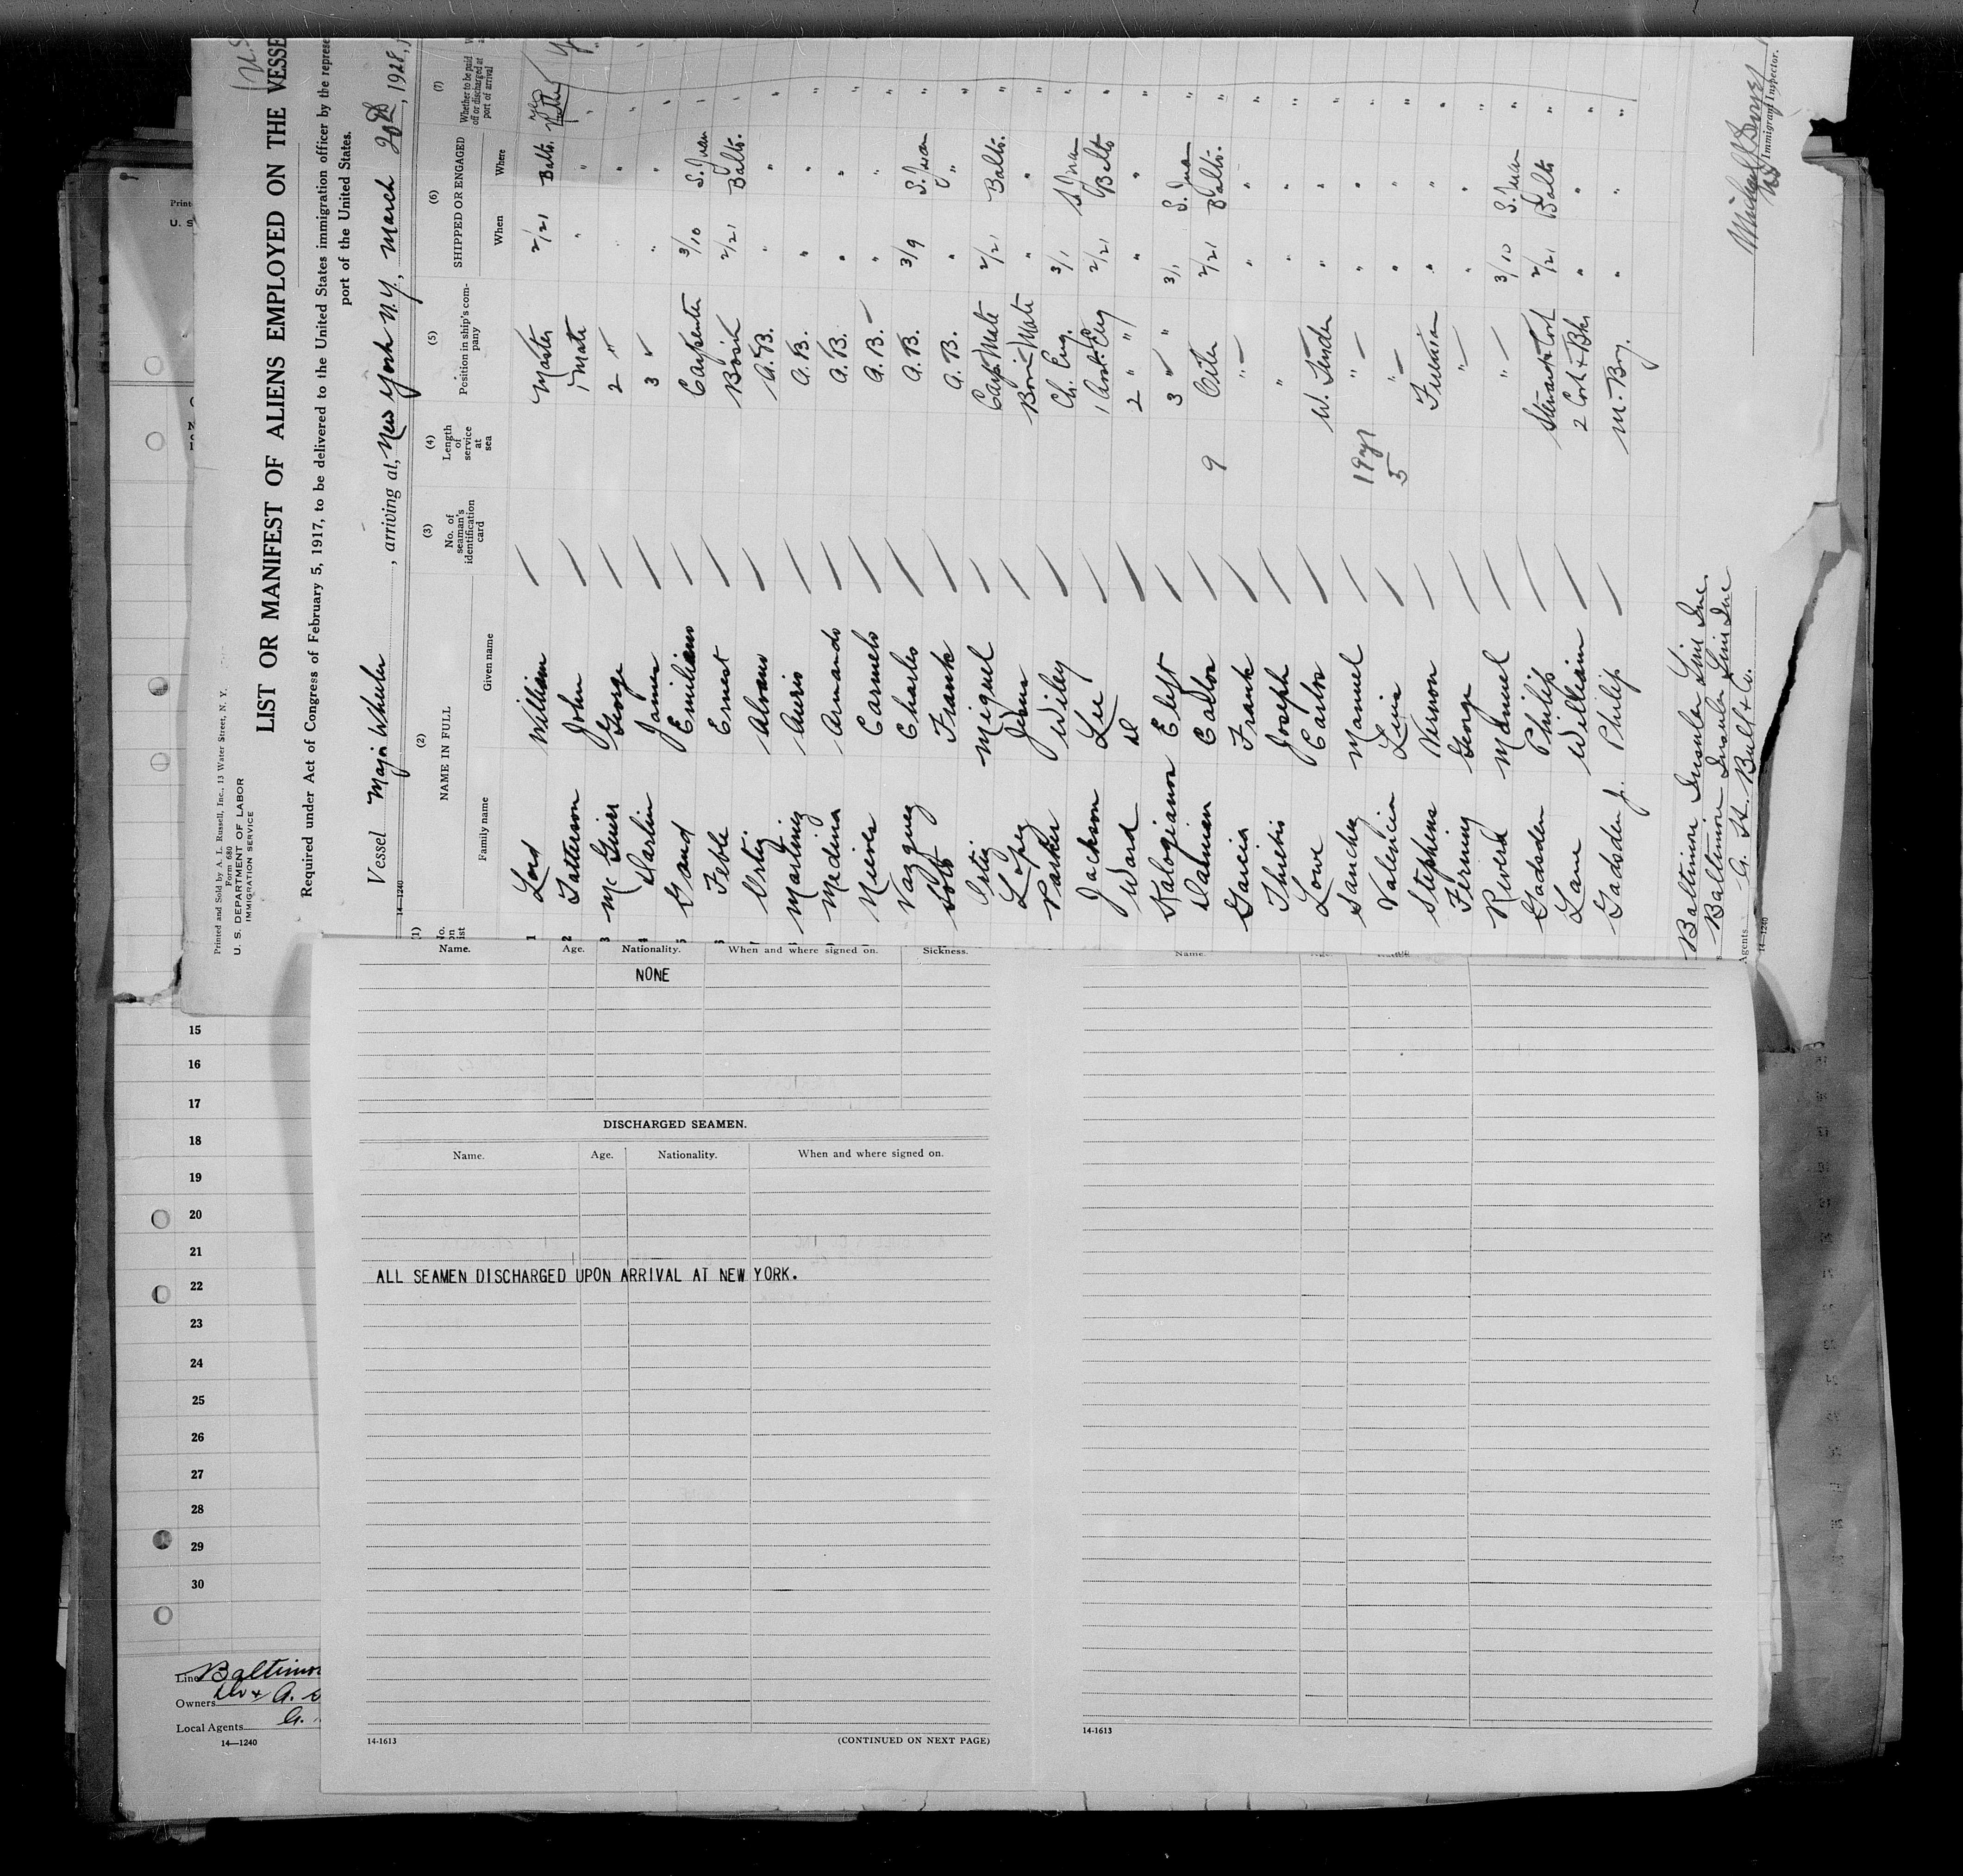 Printed and Sold by A. L. Russell, Inc., 13 Water Street, N. Y.
Form 680
U. S. DEPARTMENT OF LABOR
IMMIGRATION SERVICE
LIST OR MANIFEST OF ALIENS EMPLOYED ON THE VESSE
Required under Act of Congress of February 5, 1917, to be delivered to the United States immigration officer by the represe
port of the United States.
Vessel Major Wheeler, arriving at, New York N.Y., March 20th, 1928,
14—1240
(1) (2) (3) (4) (5) (6) (7)
NAME IN FULL
No. of seaman's identification card
Length of service at sea
Position in ship's company
SHIPPED OR ENGAGED
Whether to be paid off or discharged at port of arrival
Family name Given name When Where
1 Lord William Master 2/21 Balto.
2 Patterson John 1 Mate " "
3 McGuirr George 2 " " "
4 Darlin James 3 " " "
5 Gand Emiliano Carpenter 3/10 S. Juan
Feble Ernest Bosin 2/21 Balto.
Ortiz Alvaro A.B. " "
Martinez Auris A.B. " "
Medina Armando A.B. " "
Nieves Carmelo A.B. " "
Vazquez Charles A.B. 3/9 S. Juan
Soto Frank A.B. " "
Ortiz Miguel Carp. Mate 2/21 Balto.
Lopez Jesus Bosin Mate " "
Parker Wiley Ch. Eng. 3/1 S. Juan
Jackson Lee 1 Asst. Eng 2/21 Balto
Ward D 2 " " " "
Kalogianon Eleft 3 " " 3/1 S. Juan
Damian Carlos Oiler 2/21 Balto.
Garcia Frank " " "
Thietis Joseph " " "
Lowe Carlos W. Tender " "
Sanchez Manuel 19 yr " " "
Valencia Luis 5 " " "
Stephens Vernon Fireman " "
Ferming George " " "
Rivera Manuel " 3/10 S. Juan
Gadsden Philip Steward + Cook 2/21 Balto
Lane William 2 Cook + Bkr " "
Gadsden Jr. Philip M. Boy. " "
Baltimore Insular Line Inc.
Baltimore Insular Line Inc
Agents A. H. Bull & Co.
14—1240
Immigrant Inspector.
Name. Age. Nationality. When and where signed on. Sickness.
NONE
DISCHARGED SEAMEN.
Name. Age. Nationality. When and where signed on.
ALL SEAMEN DISCHARGED UPON ARRIVAL AT NEW YORK.
14-1613
(CONTINUED ON NEXT PAGE)
Name.
14-1613
15
16
17
18
19
20
21
22
23
24
25
26
27
28
29
30
Line Baltimor
Owners
Local Agents
14—1240